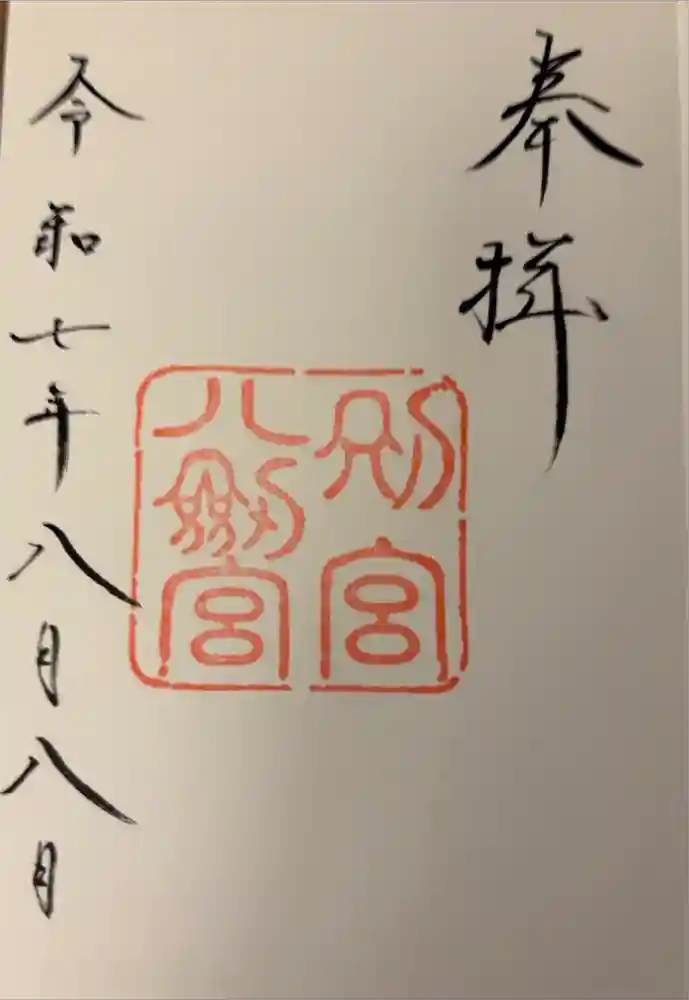 奉拝
別宮
八劔宮
令和七年八月八日